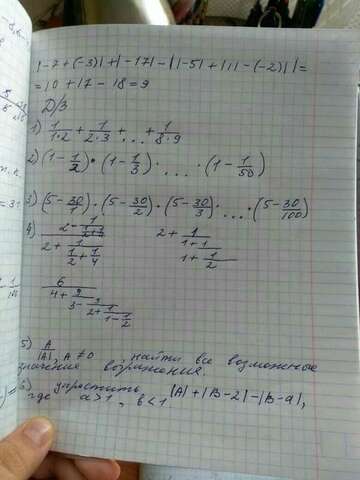 |-7+(-3)|+|-17|-||-5|+|11-(-2)||=
=10+17-18=9
Д/З
1) 1/(1·2) + 1/(2·3) + ... + 1/(8·9)
2) (1-1/2)·(1-1/3)· ... ·(1-1/50)
3) (5-30/1)·(5-30/2)·(5-30/3)· ... ·(5-30/100)
4)
2+1/(1/2+1/4)
2+1/(1+1/(1+1/2))
6/(4+2/(3-1/(2+1/(1-1/2))))
5) A/|A|, A≠0, найти все возможные
значения выражения.
6) упростить |A|+|B-2|-|B-a|,
где a>1, b<1